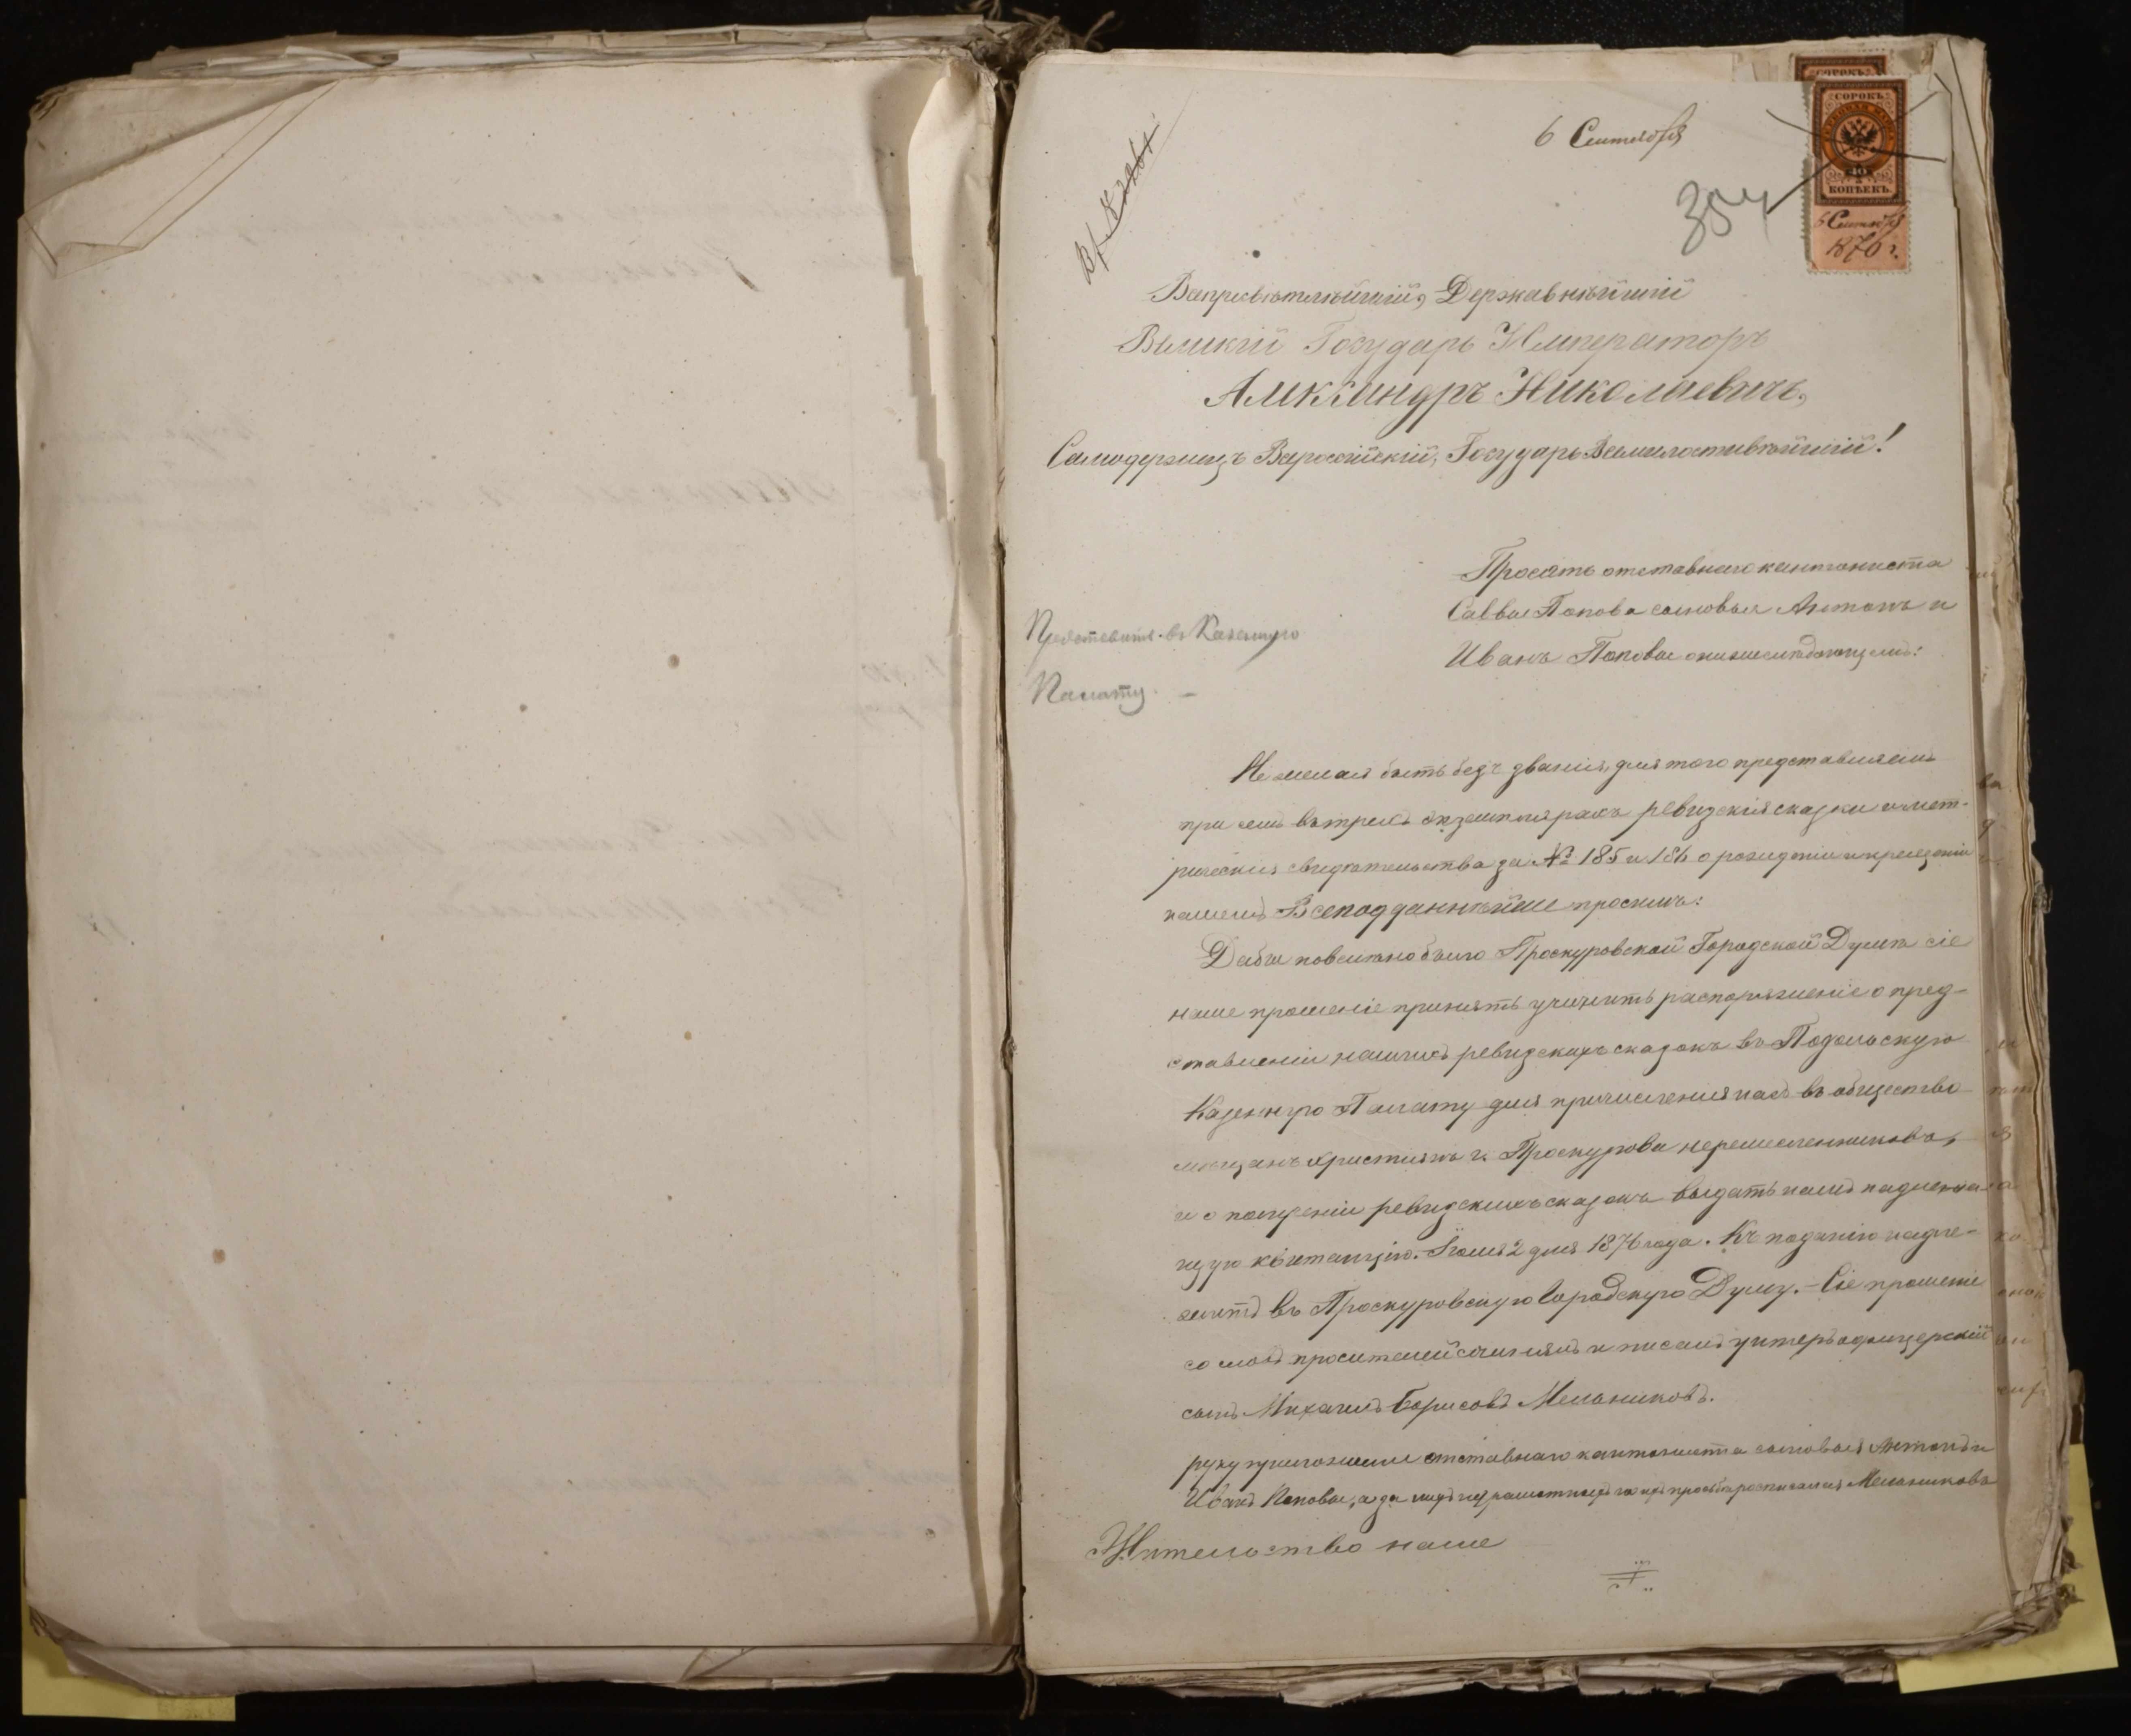 6 Сентября
354
СОРОКЪ
СОРОКЪ
40
КОПѢЕКЪ
6 Сентября
1876 г.
Всепресвѣтлѣйшій, Державнѣйшій
Великій Государь Императоръ
Александръ Николаевичъ,
Самодержецъ Всероссійскій, Государь Всемилостивѣйшій!
Просятъ отставнаго кантониста
Саввы Попова сыновья Антонъ и
Иванъ Поповы о нижеслѣдующемъ:
Представить въ Казенную
Палату. —
Не желая быть безъ званія, для того представляемъ
при семъ въ трехъ экземплярахъ ревизскія сказки и мет-
рическія свидѣтельства за № 185 и 186 о рожденіи и крещеніи
нашемъ Всеподданнѣйше просимъ:
Дабы повелѣно было Проскуровской Городской Думѣ сіе
наше прошеніе принять учинить распоряженіе о пред-
ставленіи нашихъ ревизскихъ сказокъ въ Подольскую
Казенную Палату для причисленія насъ въ общество
мѣщанъ христіянъ г. Проскурова неремесленниковъ,
и о полученіи ревизскихъ сказокъ выдать намъ надлежа-
щую квитанцію. Іюля 2 дня 1876 года. Къ поданію надле-
житъ въ Проскуровскую Городскую Думу. — Сіе прошеніе
со словъ просителей сочинялъ и писалъ унтеръ офицерскій
сынъ Михаилъ Борисовъ Мельниковъ.
руку приложили отставнаго кантониста сыновья Антонъ и
Иванъ Поповы, а за нихъ неграмотныхъ по ихъ просьбѣ росписался Мельниковъ
Жительство наше